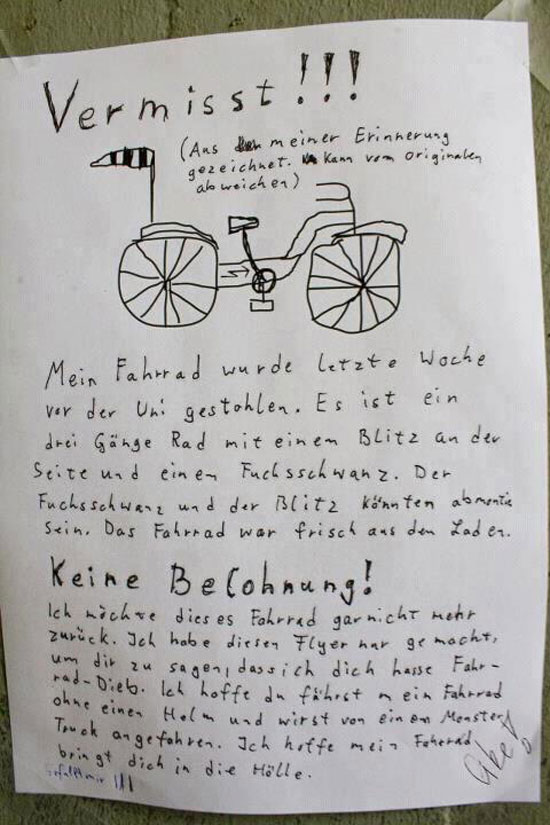 Vermisst!!!
(Aus meiner Erinnerung
gezeichnet. Kann vom originalen
abweichen)
Mein Fahrrad wurde letzte Woche
vor der Uni gestohlen. Es ist ein
drei Gänge Rad mit einem Blitz an der
Seite und einen Fuchsschwanz. Der
Fuchsschwanz und der Blitz könnten abmontie
sein. Das Fahrrad war frisch aus den Laden.
Keine Belohnung!
Ich möchte dieses Fahrrad garnicht mehr
zurück. Ich habe diesen Flyer nur gemacht,
um dir zu sagen, dass ich dich hasse Fahr-
rad-Dieb. Ich hoffe du fährst mein Fahrrad
ohne einen Helm und wirst von einem Monster
Truck angefahren. Ich hoffe mein Fahrrad
bringt dich in die Hölle.